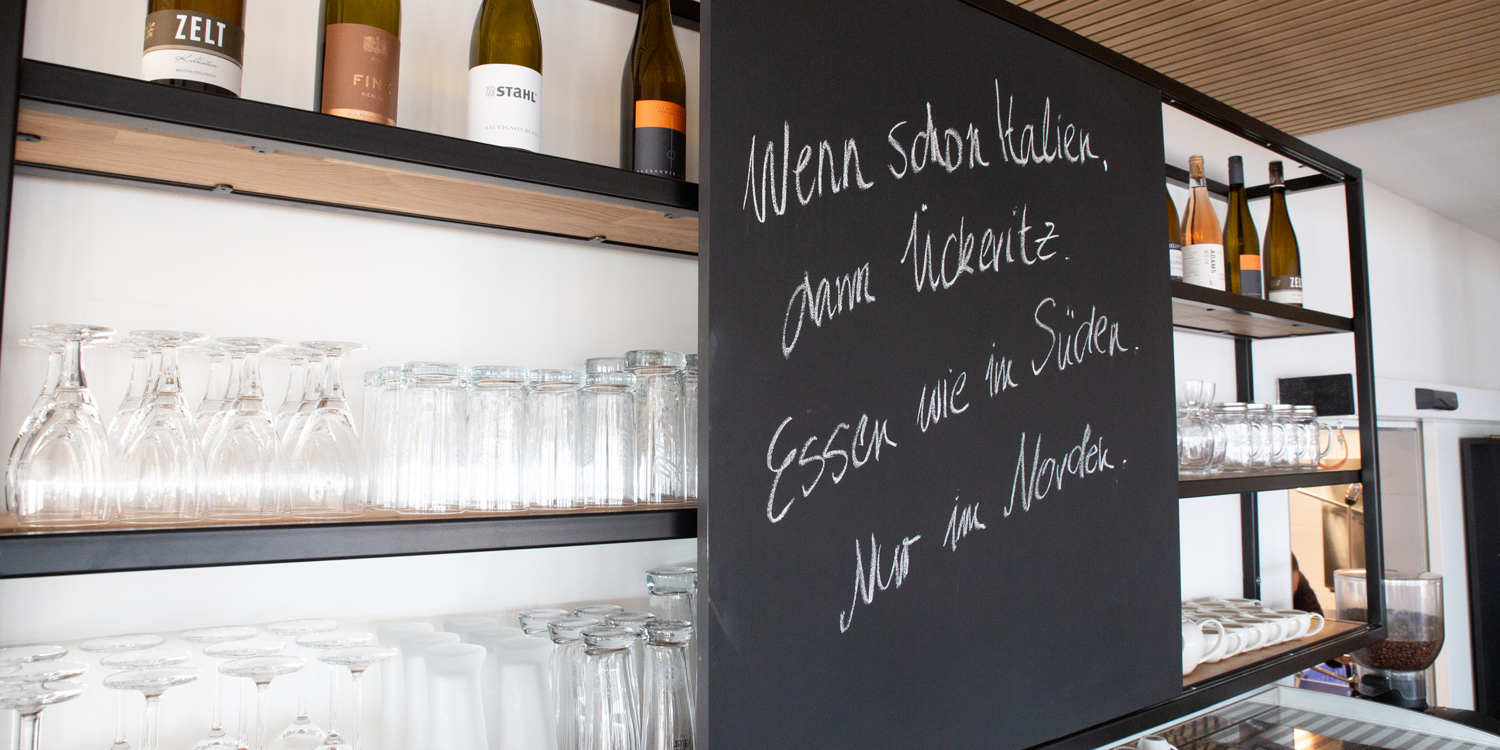 ZELT
WEISSBURGUNDER
FINK
RIESLING
STAHL
SAUVIGNON BLANC
Wenn schon Italien,
dann Ückeritz.
Essen wie im Süden.
Nur im Norden.
ADAMS
ZEL